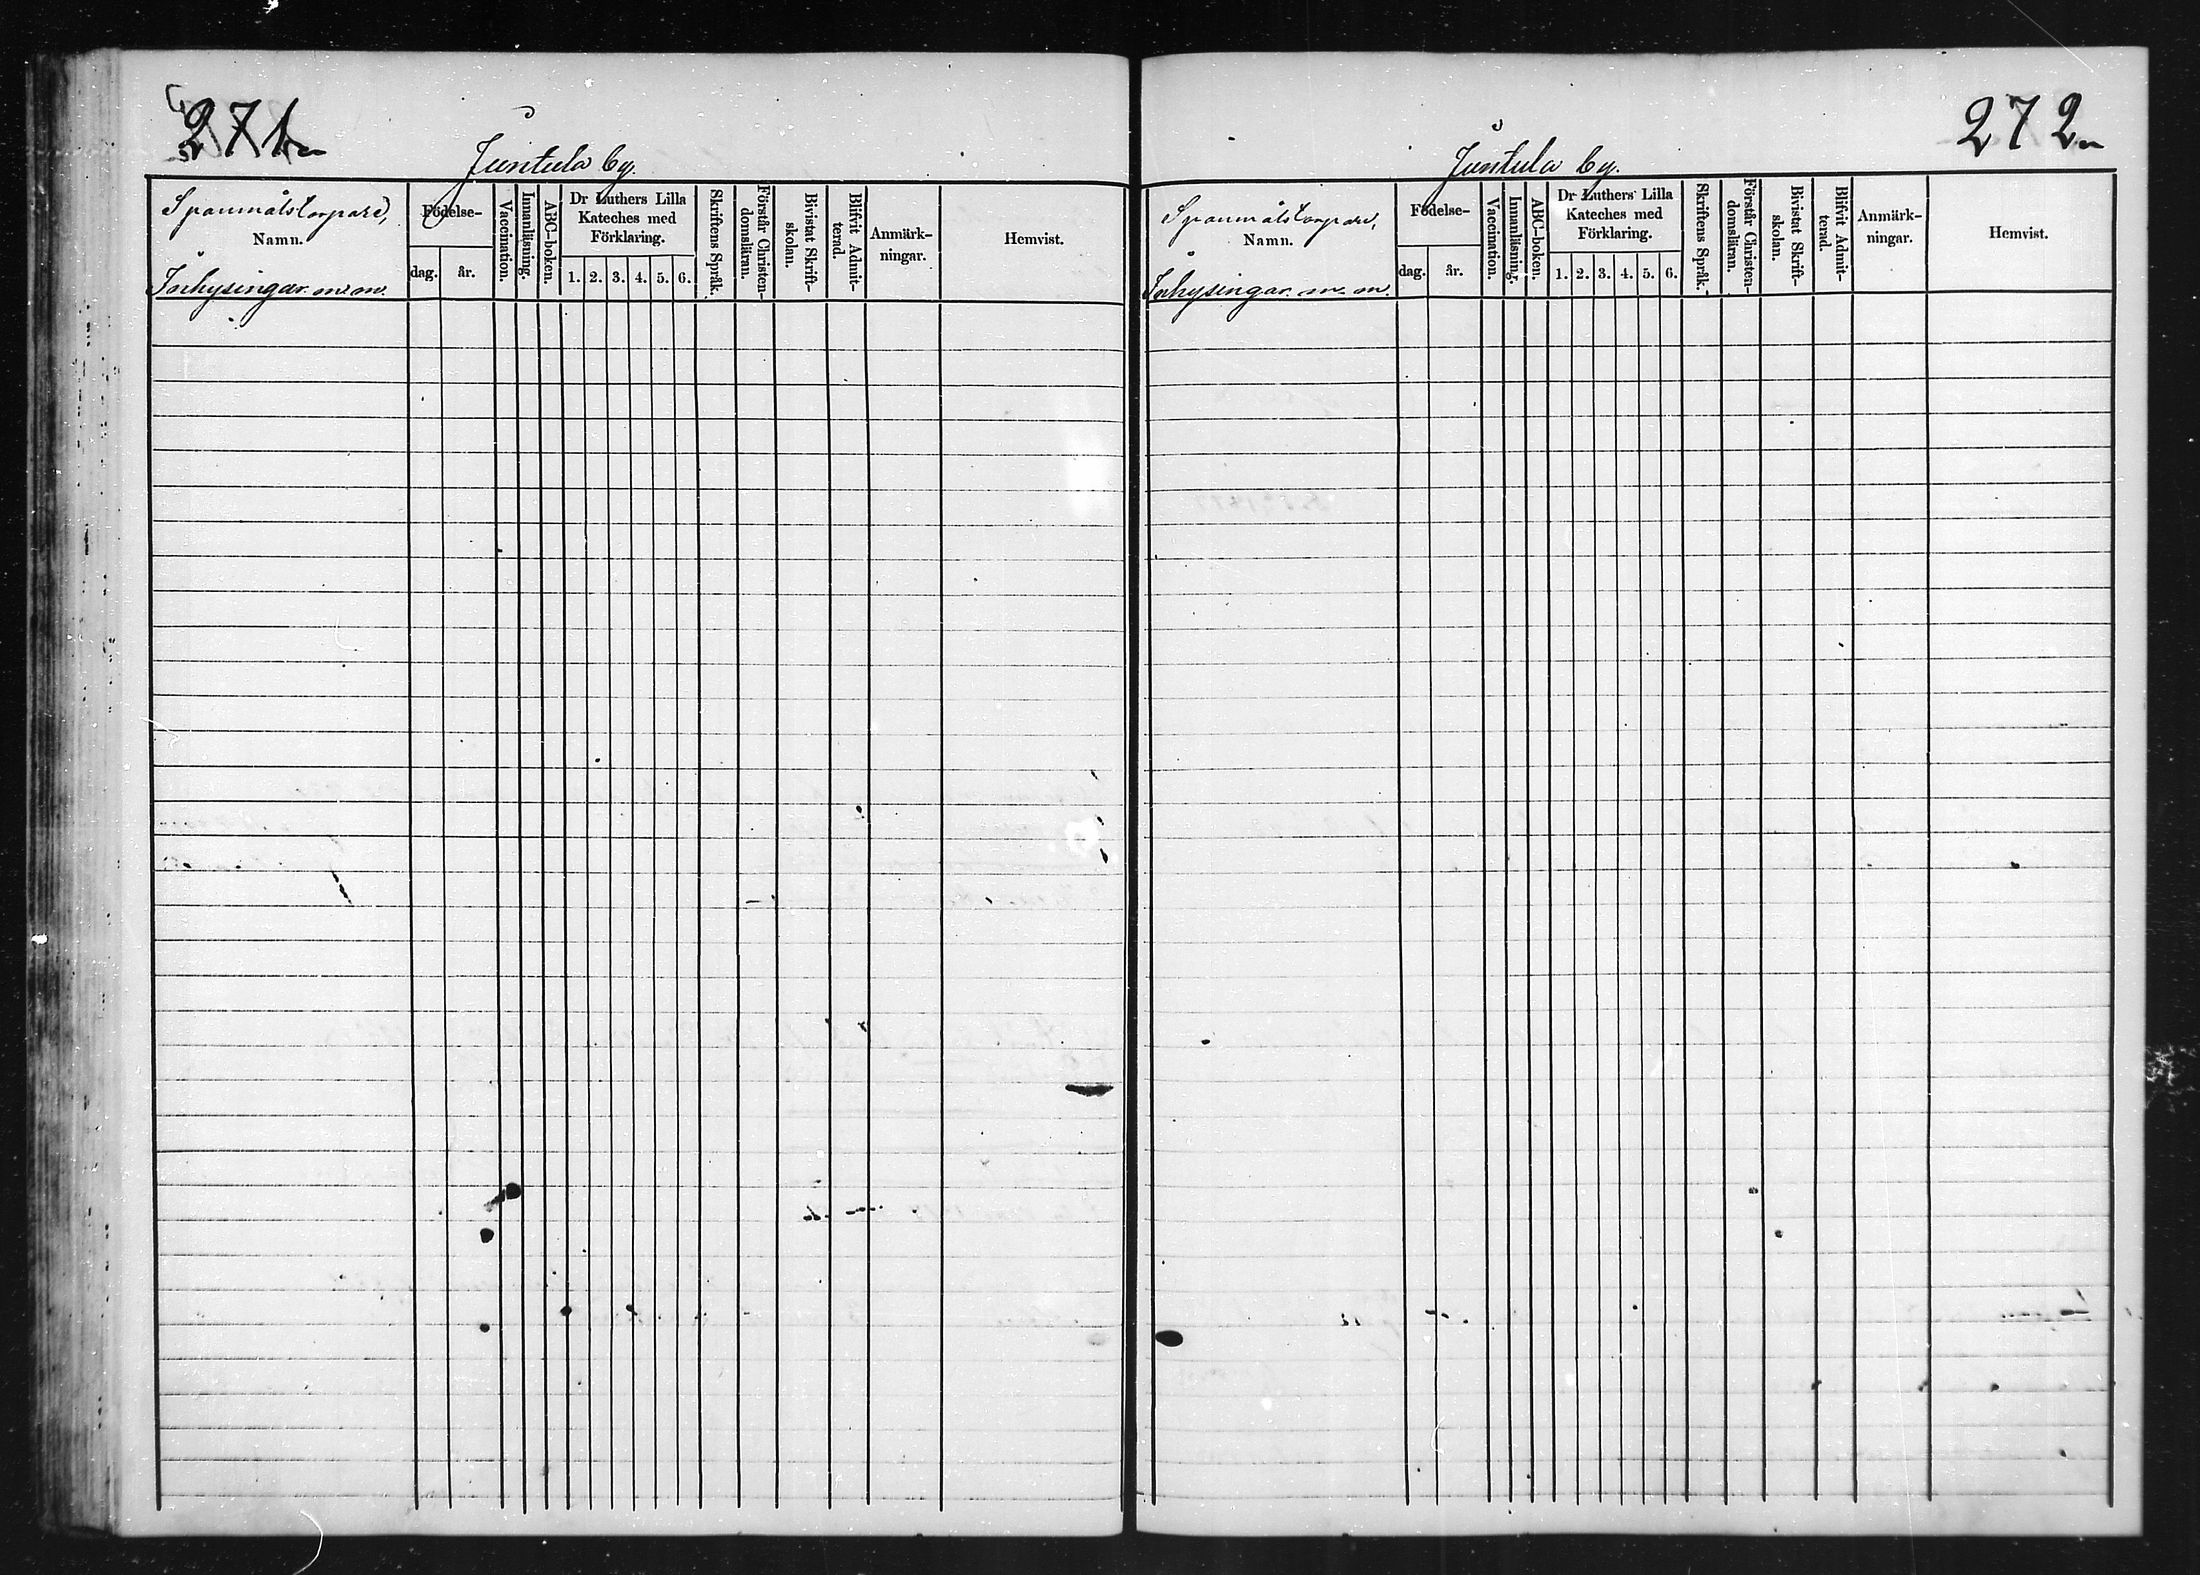 271
Juntula by.
Spanmålstorpare,
Namn.
Inhysingar m. m.
Födelse-
dag. år.
Vaccination.
Innanläsning.
ABC-boken.
Dr Luthers Lilla
Kateches med
Förklaring.
1. 2. 3. 4. 5. 6.
Skriftens Språk.
Förstår Christen-
domsläran.
Bivistat Skrift-
skolan.
Blifvit Admit-
terad.
Anmärk-
ningar.
Hemvist.
272
Juntula by.
Spanmålstorpare,
Namn.
Inhysingar m. m.
Födelse-
dag. år.
Vaccination.
Innanläsning.
ABC-boken.
Dr Luthers Lilla
Kateches med
Förklaring.
1. 2. 3. 4. 5. 6.
Skriftens Språk.
Förstår Christen-
domsläran.
Bivistat Skrift-
skolan.
Blifvit Admit-
terad.
Anmärk-
ningar.
Hemvist.